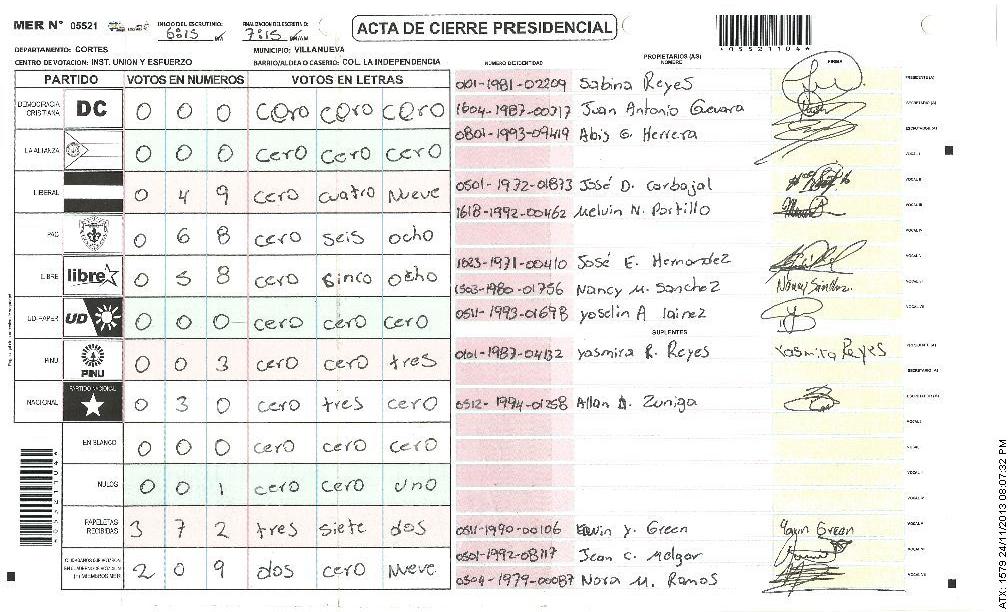 MER N° 05521
INICIO DEL ESCRUTINIO: 6:15
FINALIZACION DEL ESCRUTINIO: 7:15
ACTA DE CIERRE PRESIDENCIAL
05521104
DEPARTAMENTO: CORTES
MUNICIPIO: VILLANUEVA
CENTRO DE VOTACION: INST. UNION Y ESFUERZO
BARRIO/ALDEA O CASERIO: COL. LA INDEPENDENCIA
PARTIDO VOTOS EN NUMEROS VOTOS EN LETRAS
DEMOCRACIA CRISTIANA DC 0 0 0 cero cero cero
LA ALIANZA 0 0 0 cero cero cero
LIBERAL 0 4 9 cero cuatro Nueve
PAC 0 6 8 cero seis ocho
LIBRE libre 0 5 8 cero sinco ocho
UD-FAPER UD 0 0 0 cero cero cero
PINU PINU 0 0 3 cero cero tres
NACIONAL PARTIDO NACIONAL 0 3 0 cero tres cero
EN BLANCO 0 0 0 cero cero cero
NULOS 0 0 1 cero cero uno
PAPELETAS RECIBIDAS 3 7 2 tres siete dos
2 0 9 dos cero Nueve
NUMERO DE IDENTIDAD
PROPIETARIOS (AS)
NOMBRE
FIRMA
0101-1981-02209 Sabina Reyes
1604-1987-00717 Juan Antonio Guevara
0801-1993-09419 Abis G. Herrera
0501-1972-01873 José D. Carbajal
1618-1992-00462 Melvin N. Portillo
1623-1971-00410 José E. Hernandez
1503-1980-01756 Nancy M. Sanchez Nancy Sanchez
0511-1993-01698 Yoselin A Iainez
SUPLENTES
0101-1987-04132 Yasmira R. Reyes Yasmira Reyes
0512-1994-01258 Allan D. Zuniga
0511-1990-00106 Edwin Y. Green Edwin Green
0501-1992-08117 Jean C. Melgar
0504-1979-00087 Nora M. Ramos
ATX: 1579 24/11/2013 08:07:32 PM